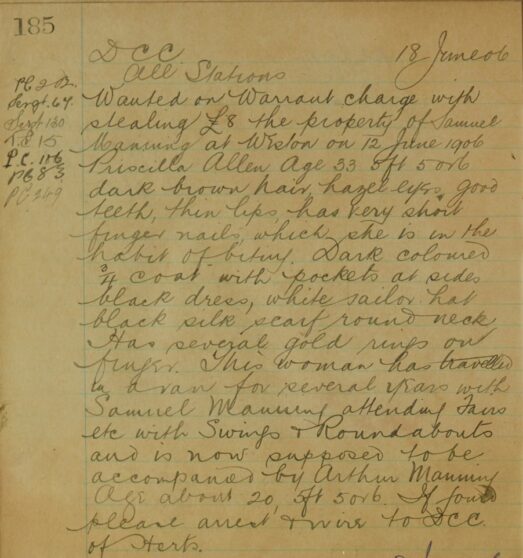 185
DCC 18 June 06
All Stations
PC 202.
Sergt. 64.
Sergt 130
T.S 15
P.C. 116
PC 83
PC 269
Wanted on Warrant charge with
stealing £8 the property of Samuel
Manning at Weston on 12 June 1906
Priscilla Allen Age 33 5ft 5 or 6
dark brown hair, hazel eyes, good
teeth, thin lips, has very short
finger nails, which she is in the
habit of biting. Dark coloured
3/4 coat with pockets at sides
black dress, white sailor hat
black silk scarf round neck
Has several gold rings on
finger. This woman has travelled
in a van for several years with
Samuel Manning attending Fairs
etc with Swings & Roundabouts
and is now supposed to be
accompanied by Arthur Manning
Age about 20, 5ft 5 or 6. If found
please arrest & wire to DCC.
of Herts.